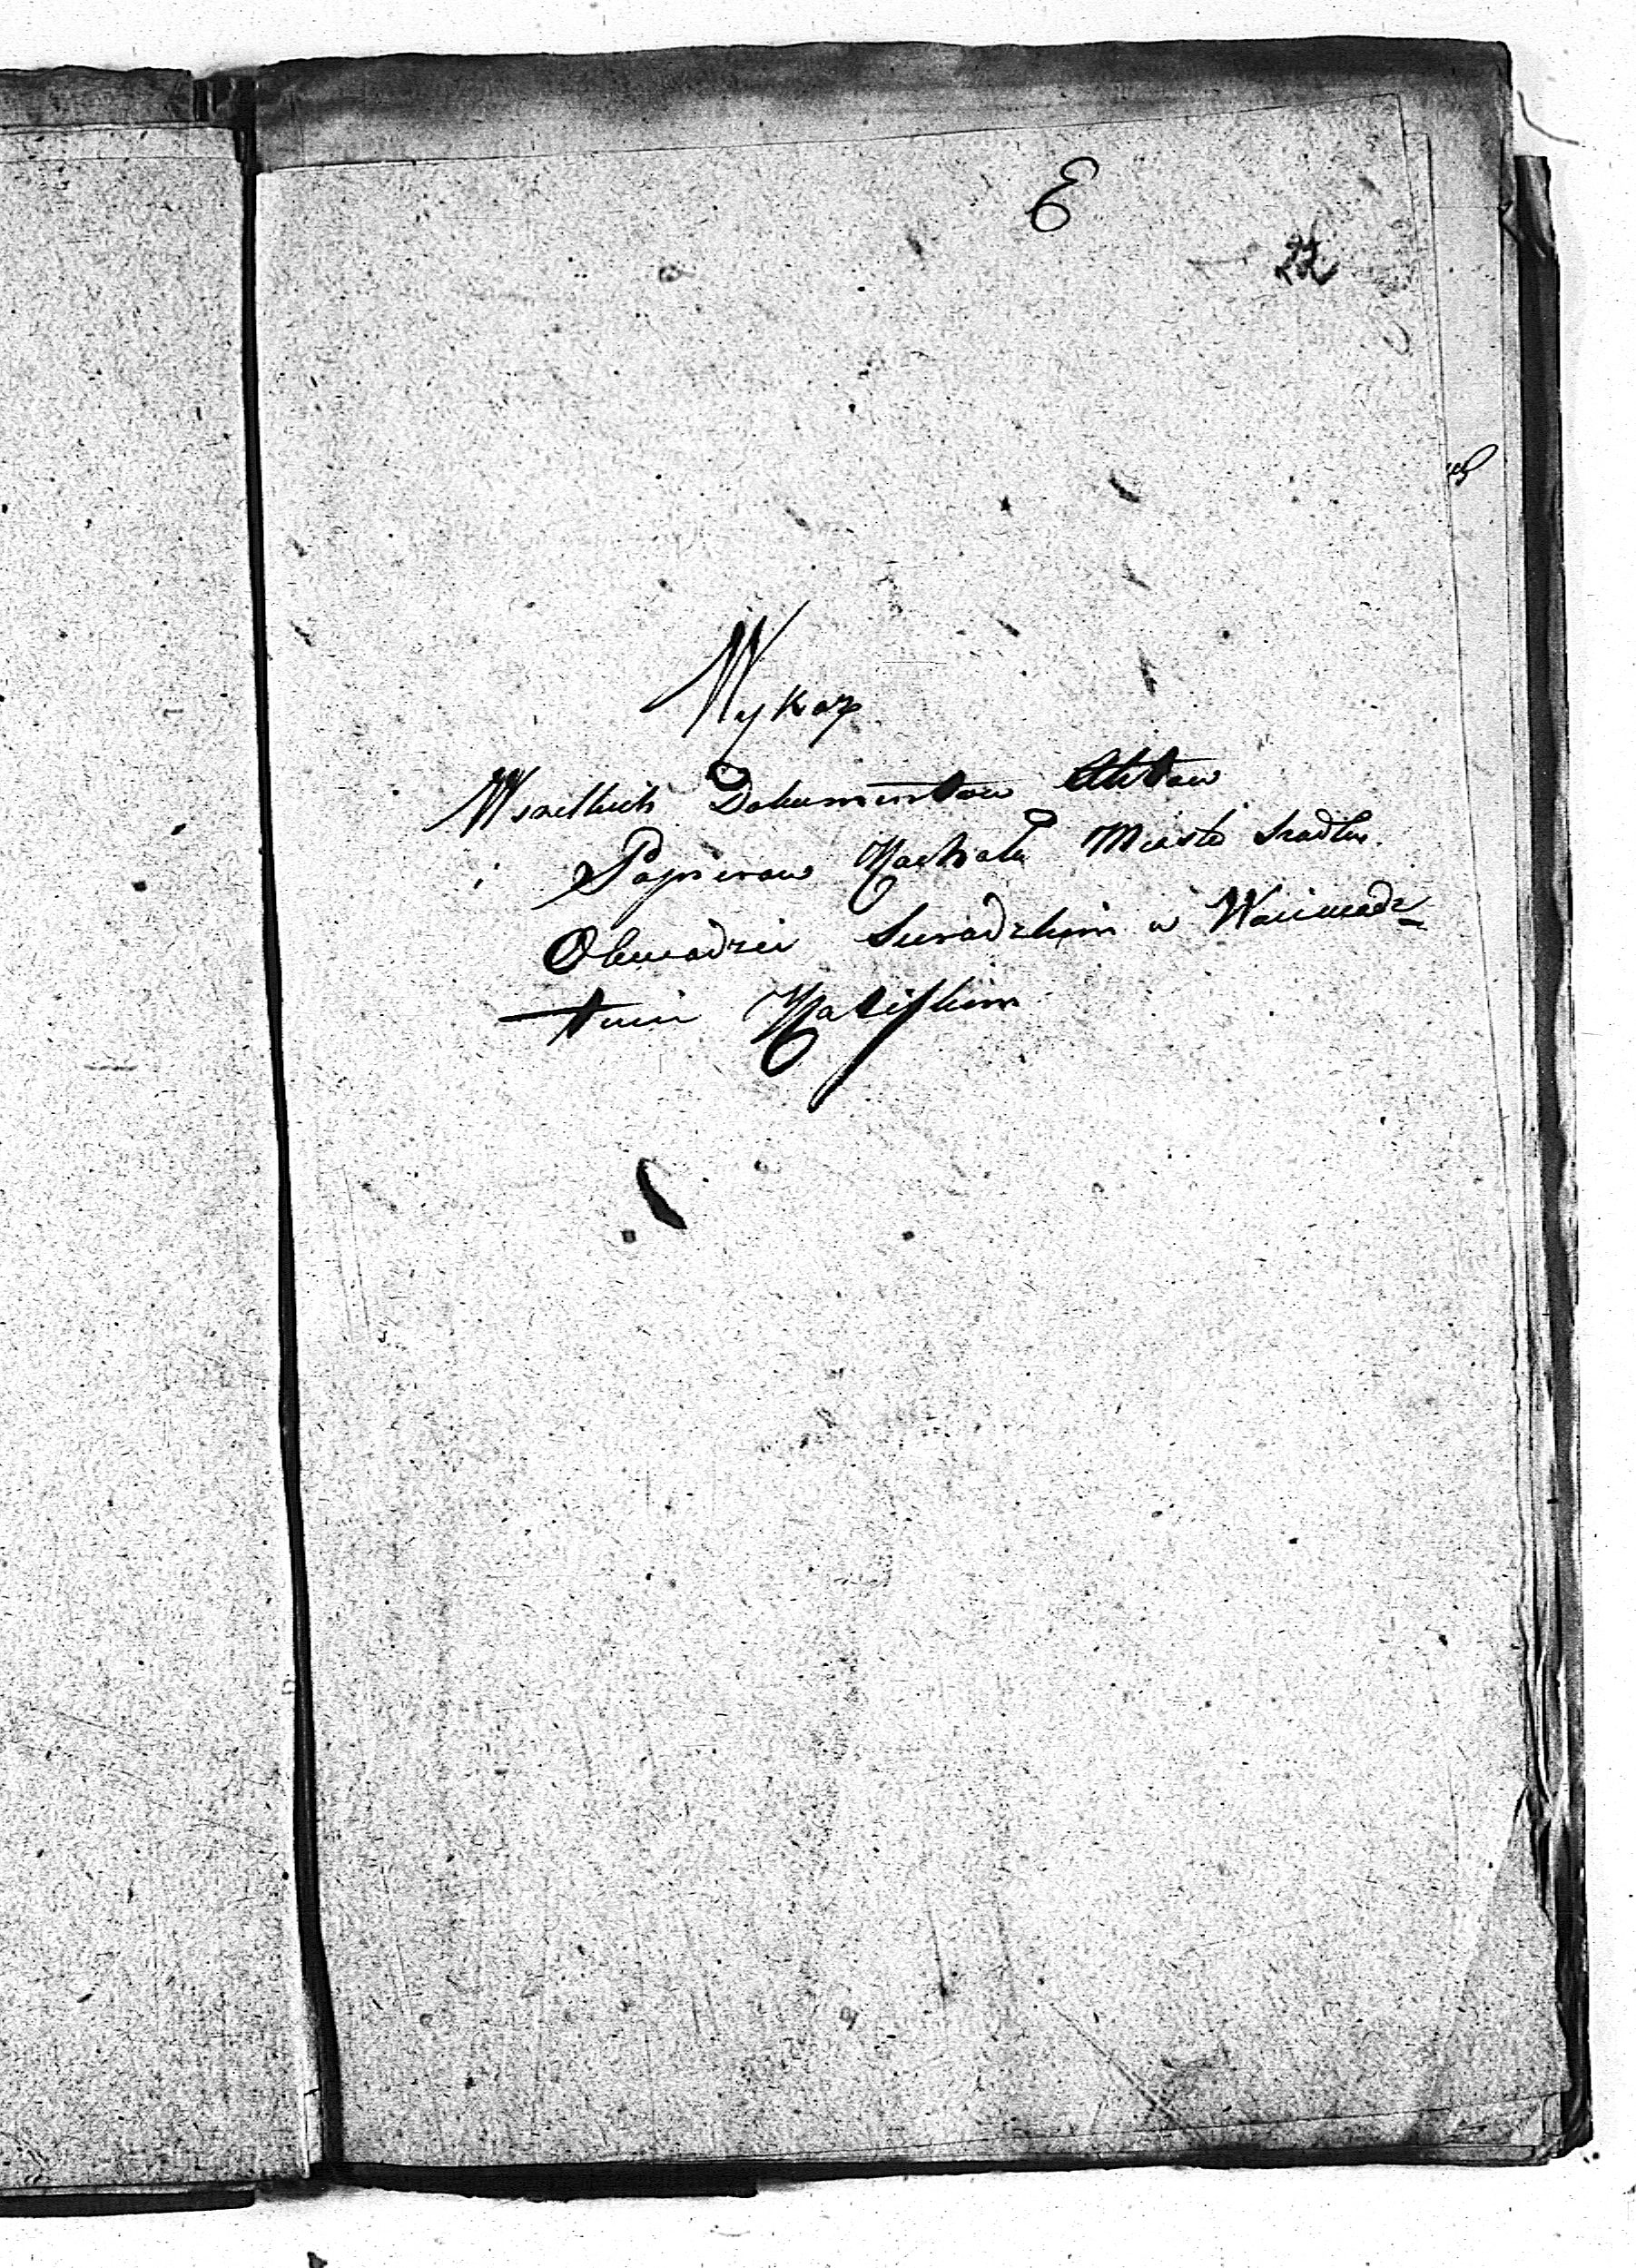 E
22
Wykaz
Wszelkich Dokumentow Aktow
i Papierow Miasta Szadku
Obwodzie Sieradzkim w Woiewodz-
twie Kaliskim